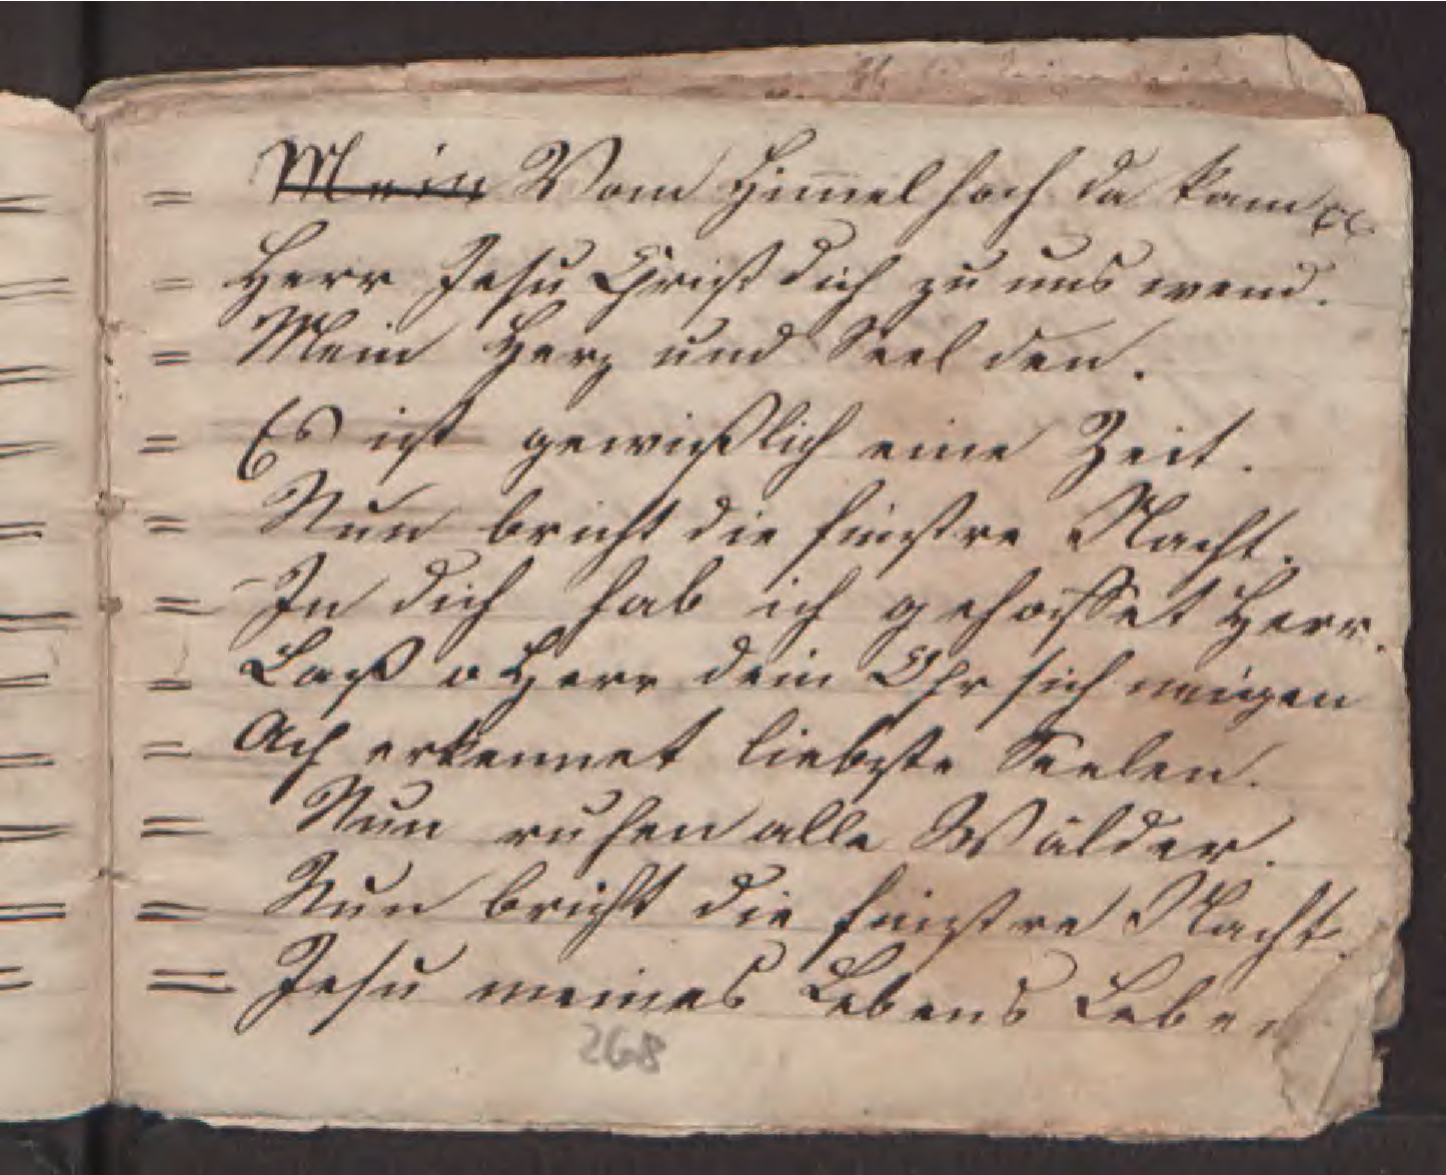 = Mein Vom Him̅el hoch da kam
= Herr Jesu Christ dich zu uns wend.
= Mein Herz und Seel den.
= Es ist gewißlich eine Zeit.
= Nun bricht die finstre Nacht.
= In dich hab ich gehoffet Herr.
= Laß o Herr dein Ohr sich neigen
= Ach erkennet liebste Seelen.
= Nun ruhen alle Wälder.
= Nun bricht die finstre Nacht.
= Jesu meines Lebens Leben
268